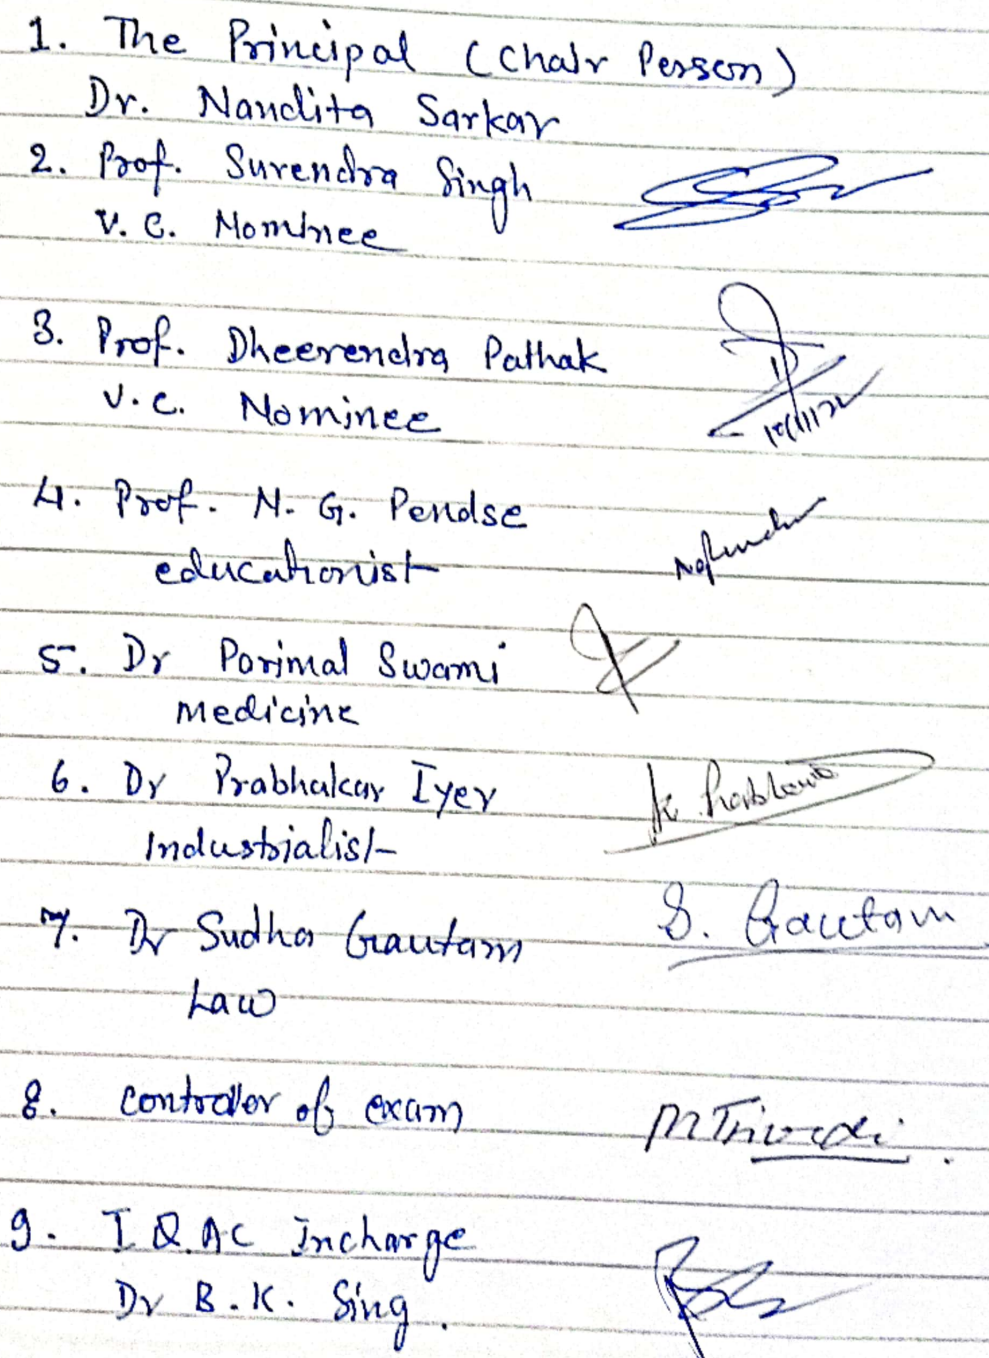 1. The Principal (Chair Person)
Dr. Nandita Sarkar
2. Prof. Surendra Singh
V. C. Nominee
3. Prof. Dheerendra Pathak
V. C. Nominee
4. Prof. N. G. Pendse
educationist
5. Dr Parimal Swami
Medicine
6. Dr Prabhakar Iyer
K. Prabhakar
Industrialist
7. Dr Sudha Gautam S. Gautam
Law
8. Controller of exam MTrivedi.
9. I Q.AC Incharge
Dr B.K. Sing.